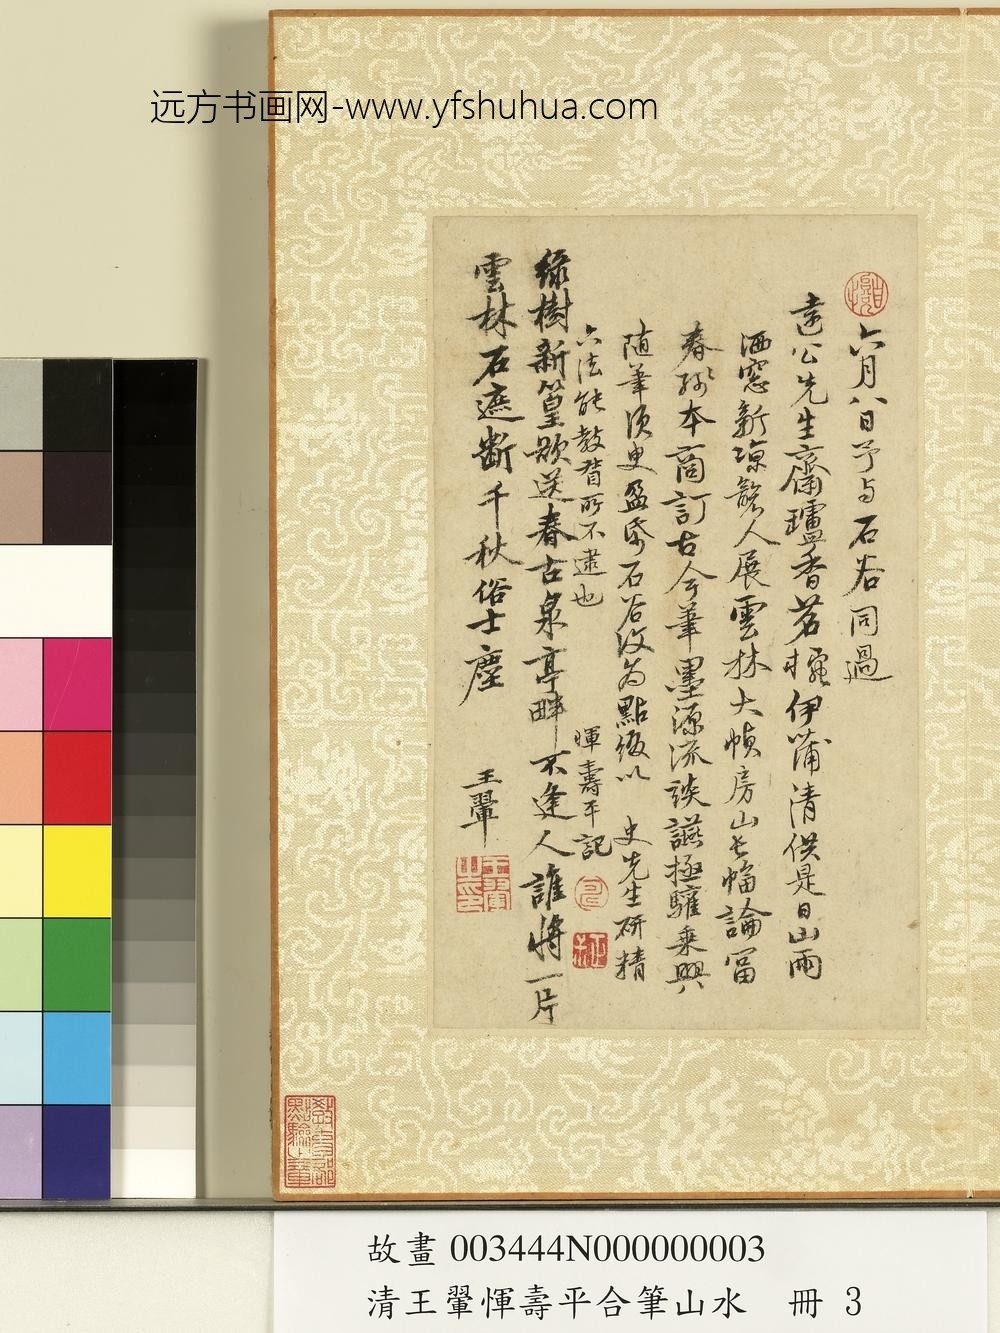 远方书画网-www.yfshuhua.com
六月八日予与石谷同過
遠公先生齋壚香茗椀伊蒲清供是日山雨
洒窓新涼襲人展雲林大幀房山長幅論冨
春殘本商訂古今筆墨源流談讌極驩乗興
随筆須臾盈帋石谷復為點綴以 史先生研精
六法能教晳所不逮也
惲壽平記
緑樹新篁歘送春古泉亭畔不逢人誰将一片
雲林石遮断千秋俗士塵
王翬
王翬之印
故畫 003444N000000003
清王翬惲壽平合筆山水 冊 3